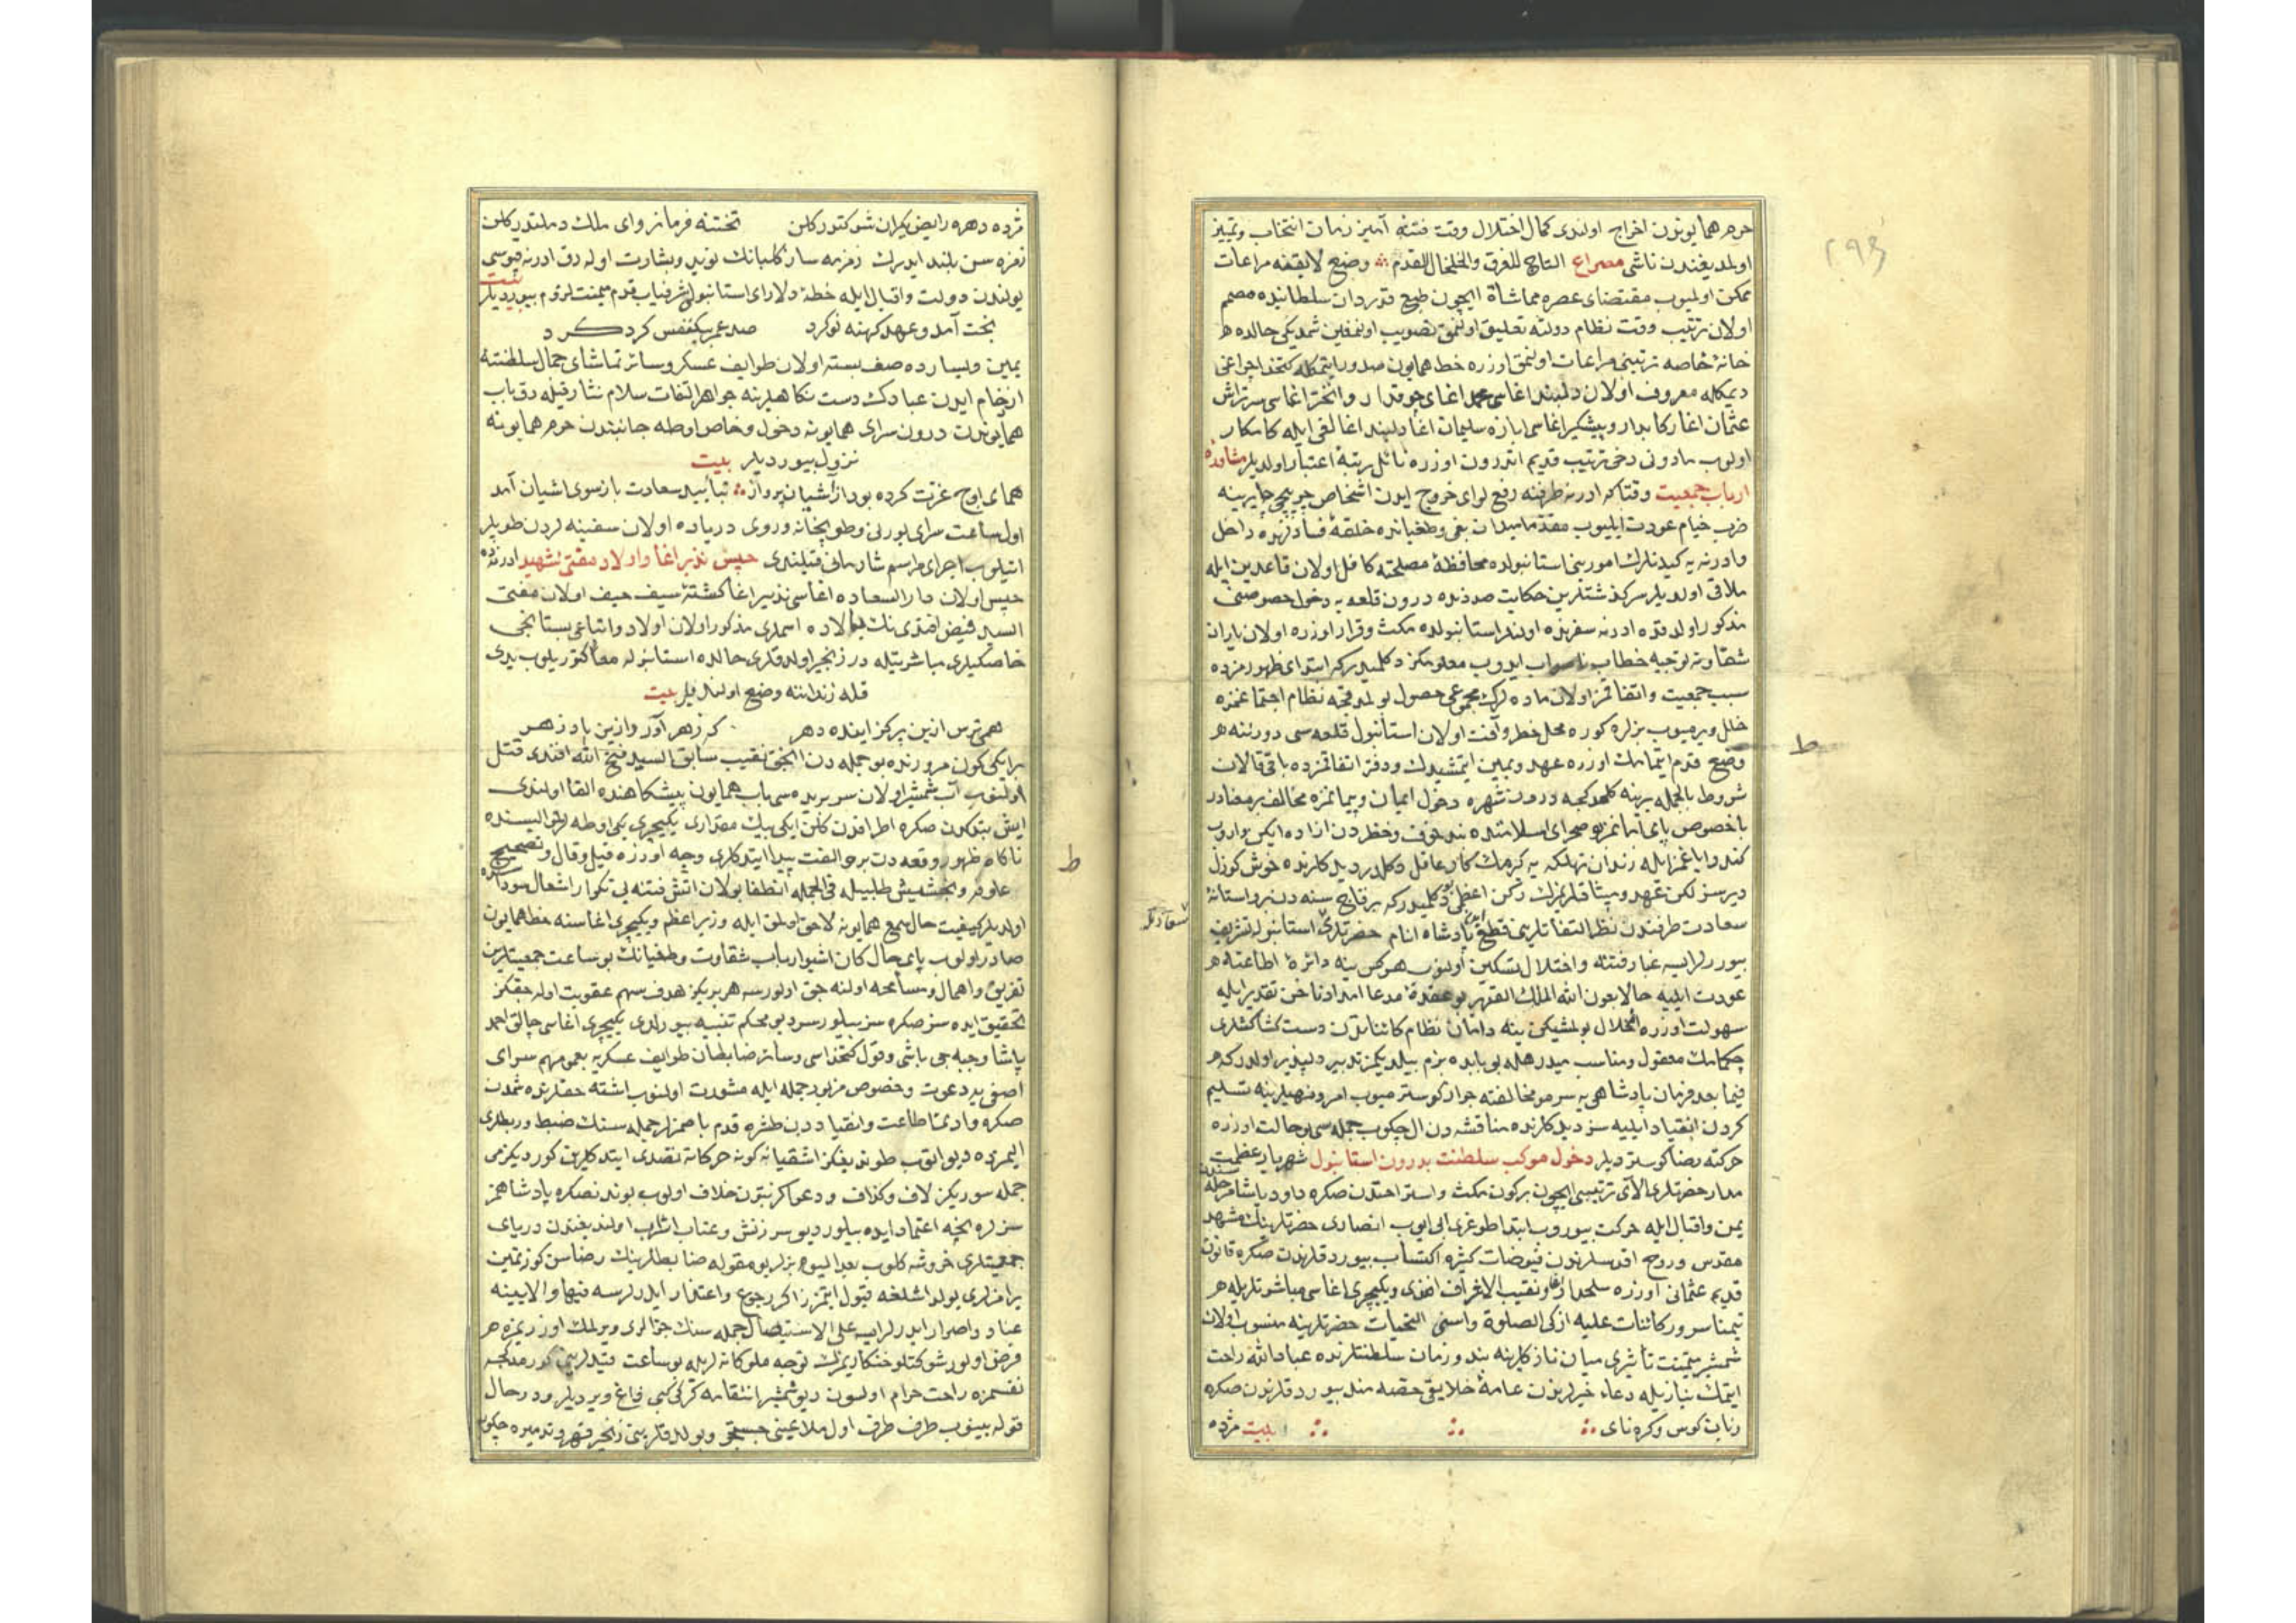 حرم همایوندن اخراج اولندی کمال اختلال وقت فتنه آمیز زمان انتخاب وتمییز
اولمدیغندن ناشی مصراع التاج للفرق والخلخال للقدم وضیع لایقنه مراعات
ممکن اولمیوب مقتضای عصره مماشاة ایچون طبع قدردان سلطانیده مصمم
اولان ترتیب وقت نظام دولته تعلیق اولنمق تصویب اولنمغین شمدیکی حالده
خانهٔ خاصه ترتیبنی مراعات اولنمق اوزره خط همایون صدور ایتمکله کتخدا چراغی
دیمکله معروف اولان دلبند اغاسی محمد اغای چوقدار وانختر اغاسی سرتراش
عثمان اغا رکابدار وپیشکیر اغاسی ابازه سلیمان اغا دلبند اغالغی ایله کامکار
اولوب مادونی دخی ترتیب قدیم اندرون اوزره نائل رتبهٔ اعتبار اولدیلر مشاورهٔ
ارباب جمعیت وقتاکه ادرنه طرفنه رفع لوای خروج ایدن اشخاص چرپیجی چایرینه
ضرب خیام عودت ایلیوب مقدما میدان بغی وطغیانده خلقهٔ فسادلرنده داخل
وادرنه یه کیدنلرك امورینی استانبولده محافظهٔ مصلحته کافل اولان قاعدین ایله
ملاقی اولدیلر سرکذشتلرین حکایت صددنده درون قلعه یه دخول خصوصنی
مذکور اولدقده ادرنه سفرنده اولنلر استانبولده مکث وقرار اوزره اولان یاران
شقاوته توجیه خطاب ایدوب معلومکز دکلمیدرکه ابتدای ظهورمزده
سبب جمعیت واتفاقمز اولان ماده لرك مجموعی حصول بولمدقجه نظام اجتماعمزه
خلل ویرمیوب بزلره کوره محل خطر وآفت اولان استانبول قلعه سی دروننه
وضع قدم ایتمامك اوزره عهد ویمین ایتمشیدك ودفتر اتفاقمزده باقی قالان
شروط بالجمله یرینه کلمدکجه درون شهره دخول ایمان وپیمانمزه مخالف
کندو ایاغمزایله زندان تهلکه یه کرمك کار عاقل دکلدر دیدکلرنده خوش کوزل
دیرسز لکن تعهد ومیثاقلریمزك رکن اعظمی بو دکلمیدرکه برقاج سنه دنبرو استانهٔ
سعادت طرفندن نظر التفاتلرینی قطع ایدن پادشاه انام حضرتلری استانبوله تشریف
بیوررلرایسه غبار فتنه واختلال تسکین اولنوب هرکس ینه دائرهٔ اطاعته
عودت ایلیه حالا بعون الله الملك القدیر بو عقدهٔ مدعا امداد ناخن تقدیرایله
سهولت اوزره انحلال بولمشیکن ینه دامان نظام کائناتدن دست کشاکشلری
چکمامك معقول ومناسب میدر هله بو بابده بزم بیلدیکمز تدبیر دلپذیر اولدرکه
فیما بعد فرمان پادشاهی یه سرمو مخالفته جواز کوسترمیوب امر ونهیلرینه تسلیم
کردن انقیاد ایلیه سز دیدکلرنده مناقشه دن ال چکوب جمله سی بوحالت اوزره
حرکته رضا کوستردیلر دخول موکب سلطنت بدرون استانبول شهریار عظمت
مدار حضرتلری الای ترتیبی ایچون برکون مکث واستراحتدن صکره داود پاشا مرحله سندن
یمن واقبال ایله حرکت بیوروب ابتدا طوغری ابی ایوب انصاری حضرتلرینك مشهد
مقدس وروح اقدسلرندن فیوضات کثیره اکتساب بیوردقلرندن صکره قانون
قدیم عثمانی اوزره سلحدار اغا ونقیب الاشراف افندی ویکیچری اغاسی مباشرتلریله
تیمنا سرور کائنات علیه ازکی الصلوة واسنی التحیات حضرتلرینه منسوب اولان
شمشیر میمنت تأثیری میان نازکلرینه بند وزمان سلطنتلرنده عباد الله راحت
ایتمك نیازیله دعاء خیرلرندن عامهٔ خلایق حصه مند بیوردقلرندن صکره
زبان کوس وکره نای بیت مژده
٢٩٤
ط
مژده دهره رایض یکران شوکتور کلن تختنه فرمانروای ملك دملتدر کلن
نعره سن بلند ایدرك زمزمه ساز کلبانك نوید وبشارت اولدق ادرنه قپوسی
یولندن دولت واقبال ایله خطهٔ دلارای استانبولی شرفیاب قدم میمنت لزوم بیوردیلر بیت
بخت آمد وعهد کهنه نوکرد صد عمر بیکنفس کرد کرد
یمین ویسارده صف بسته اولان طوایف عسکر وسائر تماشای جمال سلطنته
ازدحام ایدن عبادك دست نکاهلرینه جواهر التفات سلام نثار قیله رق باب
همایوندن درون سرای همایونه دخول وخاص اوطه جانبندن حرم همایونه
نزول بیوردیلر بیت
همای اوج عزت کرده بود از آشیان پرواز بتأیید سعادت باز سوی اشیان آمد
اول ساعت سرای بورنی وطوپخانه وروی دریاده اولان سفینه لردن طوپلر
اتیلوب اجرای مراسم شادمانی قیلندی حبس نذیر اغا واولاد مفتی شهید ادرنه ده
حبس اولان دارالسعاده اغاسی نذیر اغا کشتهٔ سیف حیف اولان مفتی
السید فیض افندی نك بالاده اسملری مذکور اولان اولاد واتباعی بستانجی
خاصکیلری مباشرتیله در زنجیر اولدقلری حالده استانبوله معا کتوریلوب یدی
قله زنداننه وضع اولندیلر بیت
همی ترس ازین پرکز اینده دهر که زهر آور وازین پادزهر
برایکی کون مرورنده بو جمله دن انجق نقیب سابق السید فتح الله افندی قتل
اولنوب آب شمشیر اولان سر بریده سی باب همایون پیشکاهنده القا اولندی
ایش بتدکدن صکره اطرافدن کلن ایکی بیك مقداری یکیچری یکی اوطه لر
ناکاه ظهور وقعه دن برو الفت پیدا ایتدکلری وجه اوزره قیل وقال وتصحیح
علوفه وبخشیش طلبیله فی الجمله انطفا بولان اتش فتنه یی تکرار اشعال سوداسنده
اولدیلر کیفیت حال سمع همایونه لاحق اولمق ایله وزیر اعظم ویکیچری اغاسنه خط همایون
صادر اولوب پای حال کان اشبو ارباب شقاوت وطغیانك بوساعت جمعیتلرین
تفریق واهمال ومسامحه اولنه جق اولورسه هر بریکز هدف سهم عقوبت اوله جقکز
تحقیق ایده سز صکره سز بیلورسز دیو محکم تنبیه بیوردی یکیچری اغاسی چالق احمد
پاشا وجبه جی باشی وقول کتخداسی وسائر ضابطان طوایف عسکریه یی سرای
اصفی یه دعوت وخصوص مزبور جمله ایله مشورت اولنوب اشته حقلرنده شمدن
صکره وادئ اطاعت وانقیاددن طشره قدم باصمزلر جمله سنك ضبط وربطلری
المزده دیو الوب طوندیغکز اشقیانه کونه حرکاته تصدی ایتدکلرین کوردیکزمی
جمله سوزیکز لاف وکذاف ودعواکز بتون خلاف اولوب بوندنصکره پادشاهمز
سزلره نیجه اعتماد ایده بیلور دیو سرزنش وعتاب ارتکاب اولندیغندن دریای
جمعیتلری خروشه کلوب بعد الیوم بزلر بو مقوله ضابطلرینك رضاسن کوزتمین
یرامزلری یولداشلغه قبول ایتمزز اکر رجوع واعتذار ایدرلرسه فبها والا یینه
عناد واصرار ایدرلرایسه علی الاستیصال جمله سنك جزالری ویرلمك اوزریمزه
فرض اولور شوکتلو خنکاریمزك توجه ملوکانه لریله بوساعت قیدلرینی کورمدکجه
نفسمزه راحت حرام اولسون دیو شمشیر انتقامه کرکی کبی فاغ ویردیلر ودرحال
قوله بینوب طرف طرف اول ملاعینی جستجو وبولدقلرینی زنجیر قهر وتدمیره چکوب
ط